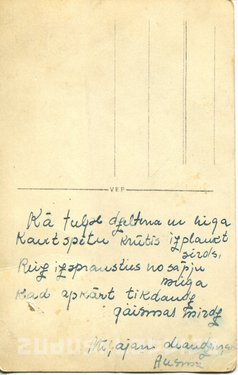 VEF
Kā tulpe dzeltena un liega
Kaut spētu krūtīs izplaukt
sirds,
izsprausties no sāpju
miega
Kad apkārt tik daudz
gaismas mirdz
Mīļajai draudzenei